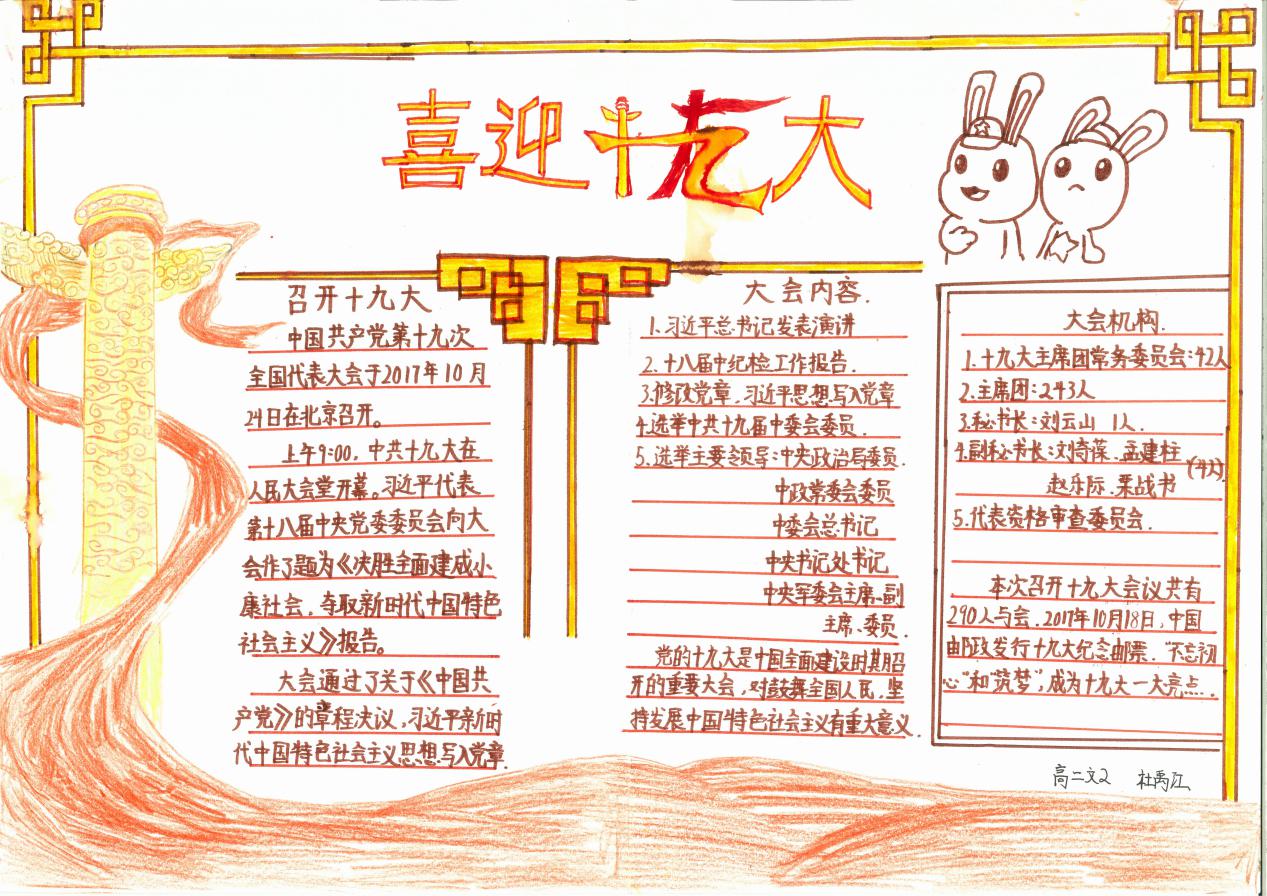 喜迎十九大
召开十九大
中国共产党第十九次
全国代表大会于2017年10月
24日在北京召开。
上午9:00，中共十九大在
人民大会堂开幕。习近平代表
第十八届中央党委委员会向大
会作了题为《决胜全面建成小
康社会，夺取新时代中国特色
社会主义》报告。
大会通过了关于《中国共
产党》的章程决议，习近平新时
代中国特色社会主义思想写入党章.
大会内容.
1.习近平总书记发表演讲
2.十八届中纪检工作报告.
3.修改党章，习近平思想写入党章
4.选举中共十九届中委会委员.
5.选举主要领导:中央政治局委员.
中政常委会委员
中委会总书记
中央书记处书记
中央军委会主席、副
主席、委员.
党的十九大是中国全面建设时期召
开的重要大会，对鼓舞全国人民，坚
持发展中国特色社会主义有重大意义.
大会机构.
1.十九大主席团常务委员会:42人
2.主席团:243人
3.秘书长:刘云山 1人.
4.副秘书长:刘奇葆、孟建柱
赵乐际.栗战书 (4人).
5.代表资格审查委员会.
本次召开十九大会议共有
290人与会.2017年10月18日,中国
邮政发行十九大纪念邮票.“不忘初
心”和“筑梦”,成为十九大一大亮点.
高二文2 杜禹江